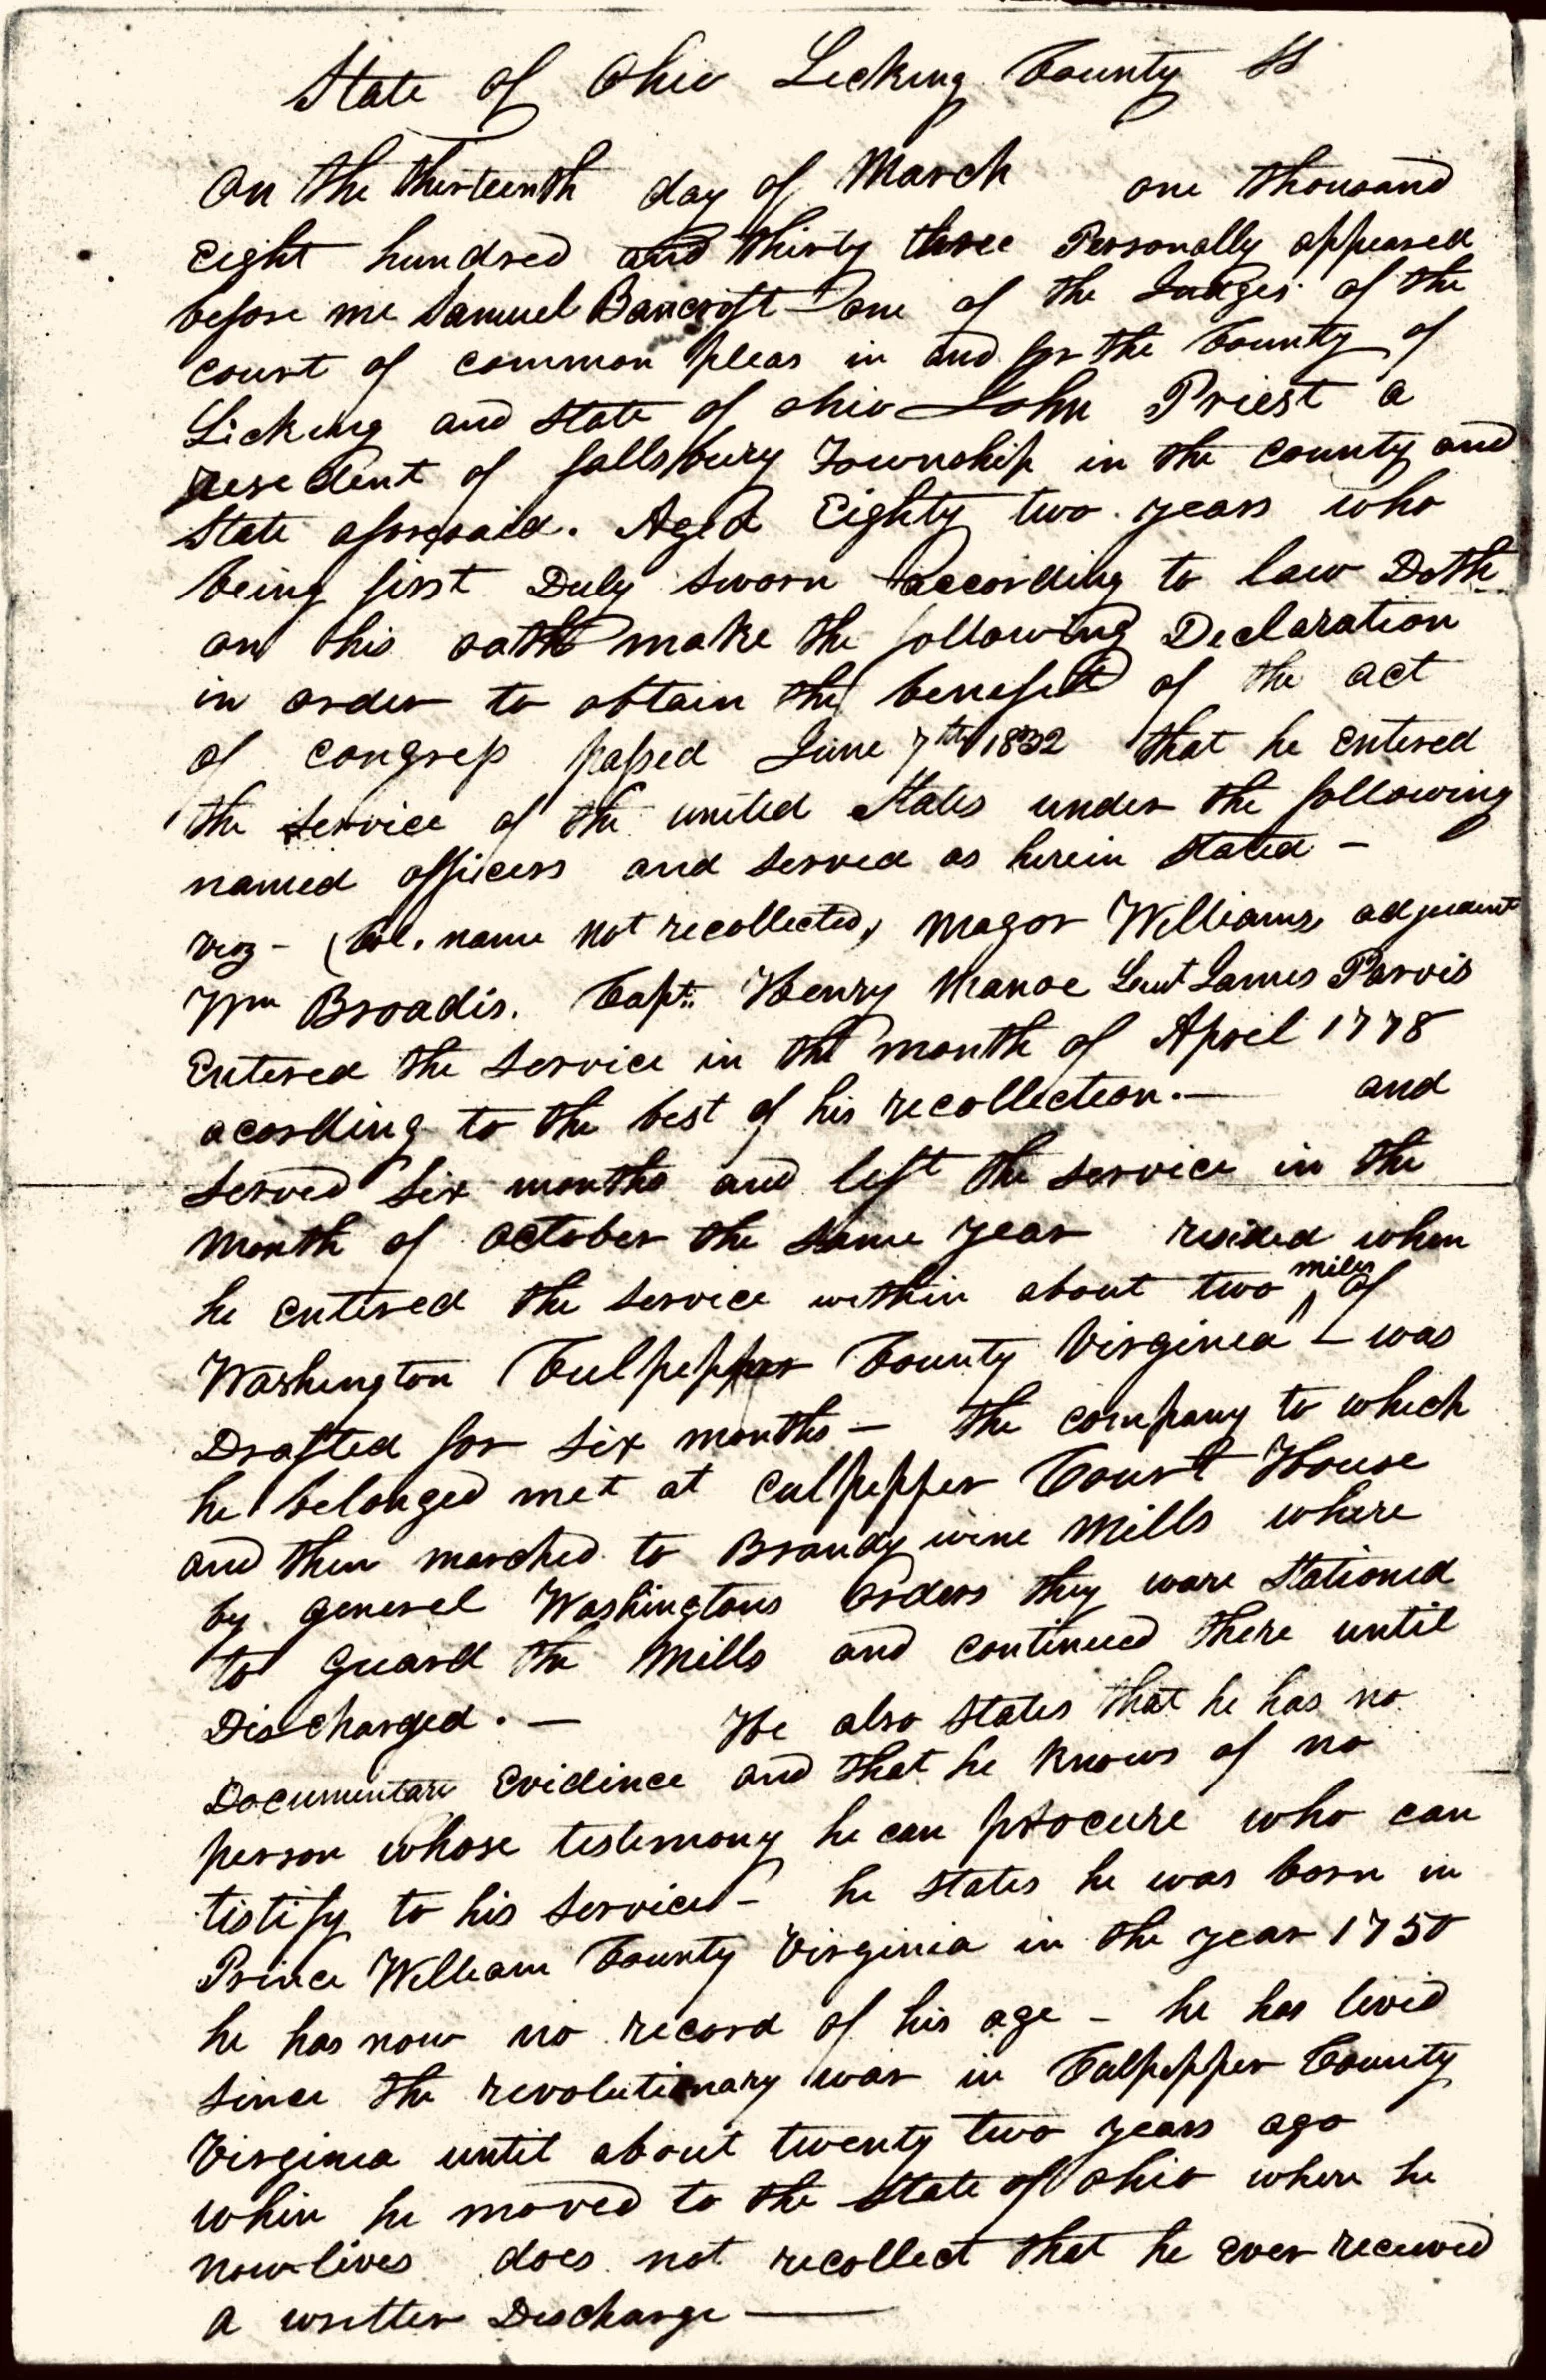 State of Ohio Licking County SS
On the thirteenth day of March one thousand
Eight hundred and thirty three Personally appeared
before me Samuel Bancroft - one of the Judges of the
court of common pleas in and for the County of
Licking and State of ohio John Priest a
resedent of fallsbury Township in the county and
State aforesaid. Aged Eighty two years who
being first Duly Sworn according to law Doth
on his oath make the following Declaration
in order to obtain the benefit of the act
of congress passed June 7th 1832 that he entered
the Service of the united States under the following
named officers and served as herein stated -
viz - (Col. name not recollected, Magor Williams, adjudent
Wm Broadis. Capt: Henry Manoe Leut James Parvis
Entered the service in the month of April 1778
acording to the best of his recollection. - and
served six months and left the service in the
month of october the same year resided when
he entered the service within about two miles of
Washington Culpepper County Virginia - was
Drafted for six months - the company to which
he belonged met at culpepper Court House
and then marched to Brandywine Mills where
by general Washingtons Orders they ware stationed
to guard the Mills and continued there until
Discharged. - He also states that he has no
Documentare Evidince and that he knows of no
person whose testemony he can procure who can
tistify to his service - he states he was born in
Prince William County Virginia in the year 1750
he has now no record of his age - he has livid
since the revolutionary war in Culpepper County
Virginia until about twenty two years ago
whin he moved to the State of ohio where he
now lives does not recollect that he ever received
a written Discharge -